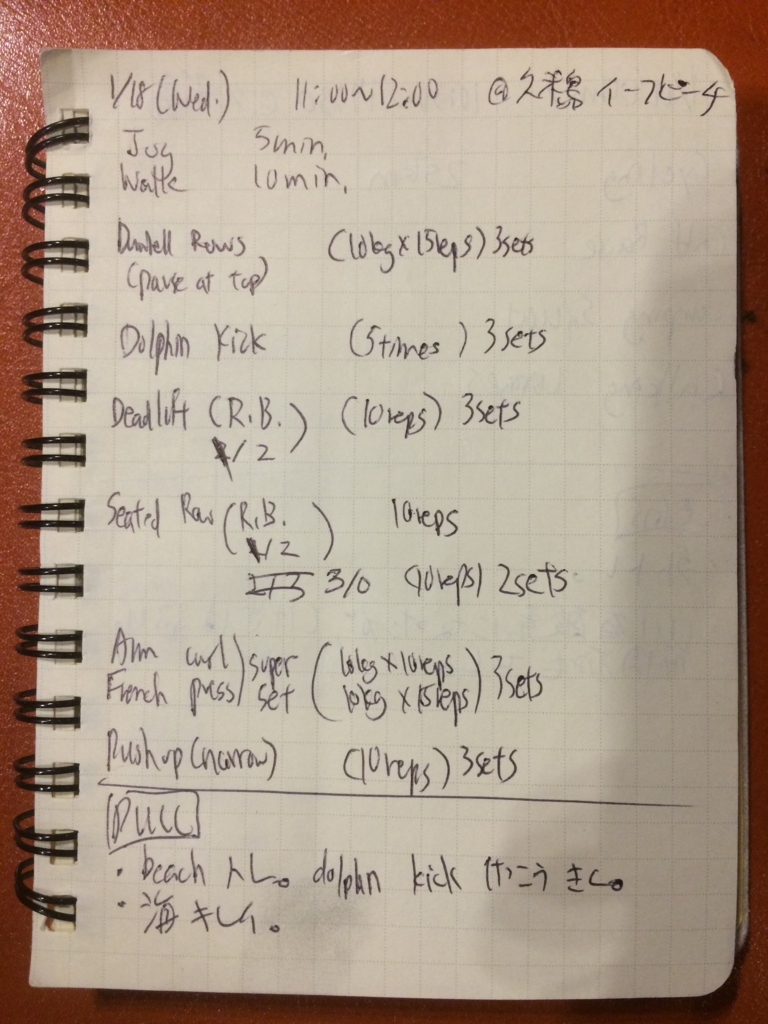 1/18 (Wed.) 11:00~12:00 @久米島 イーフビーチ
Jog 5min.
Walk 10min.
Dumbell Rows (10kg×15reps) 3sets
(pause at top)
Dolphin Kick (5times) 3sets
Deadlift (R.B.) (10reps) 3sets
/2
Seated Row (R.B.) 10reps
/2
3/0 (10reps) 2sets
Arm curl super (10kg×10reps) 3sets
French press set (10kg×15reps)
Push up (narrow) (10reps) 3sets
PULL
・beach トレ。dolphin kick けっこう きく。
・海 キレイ。